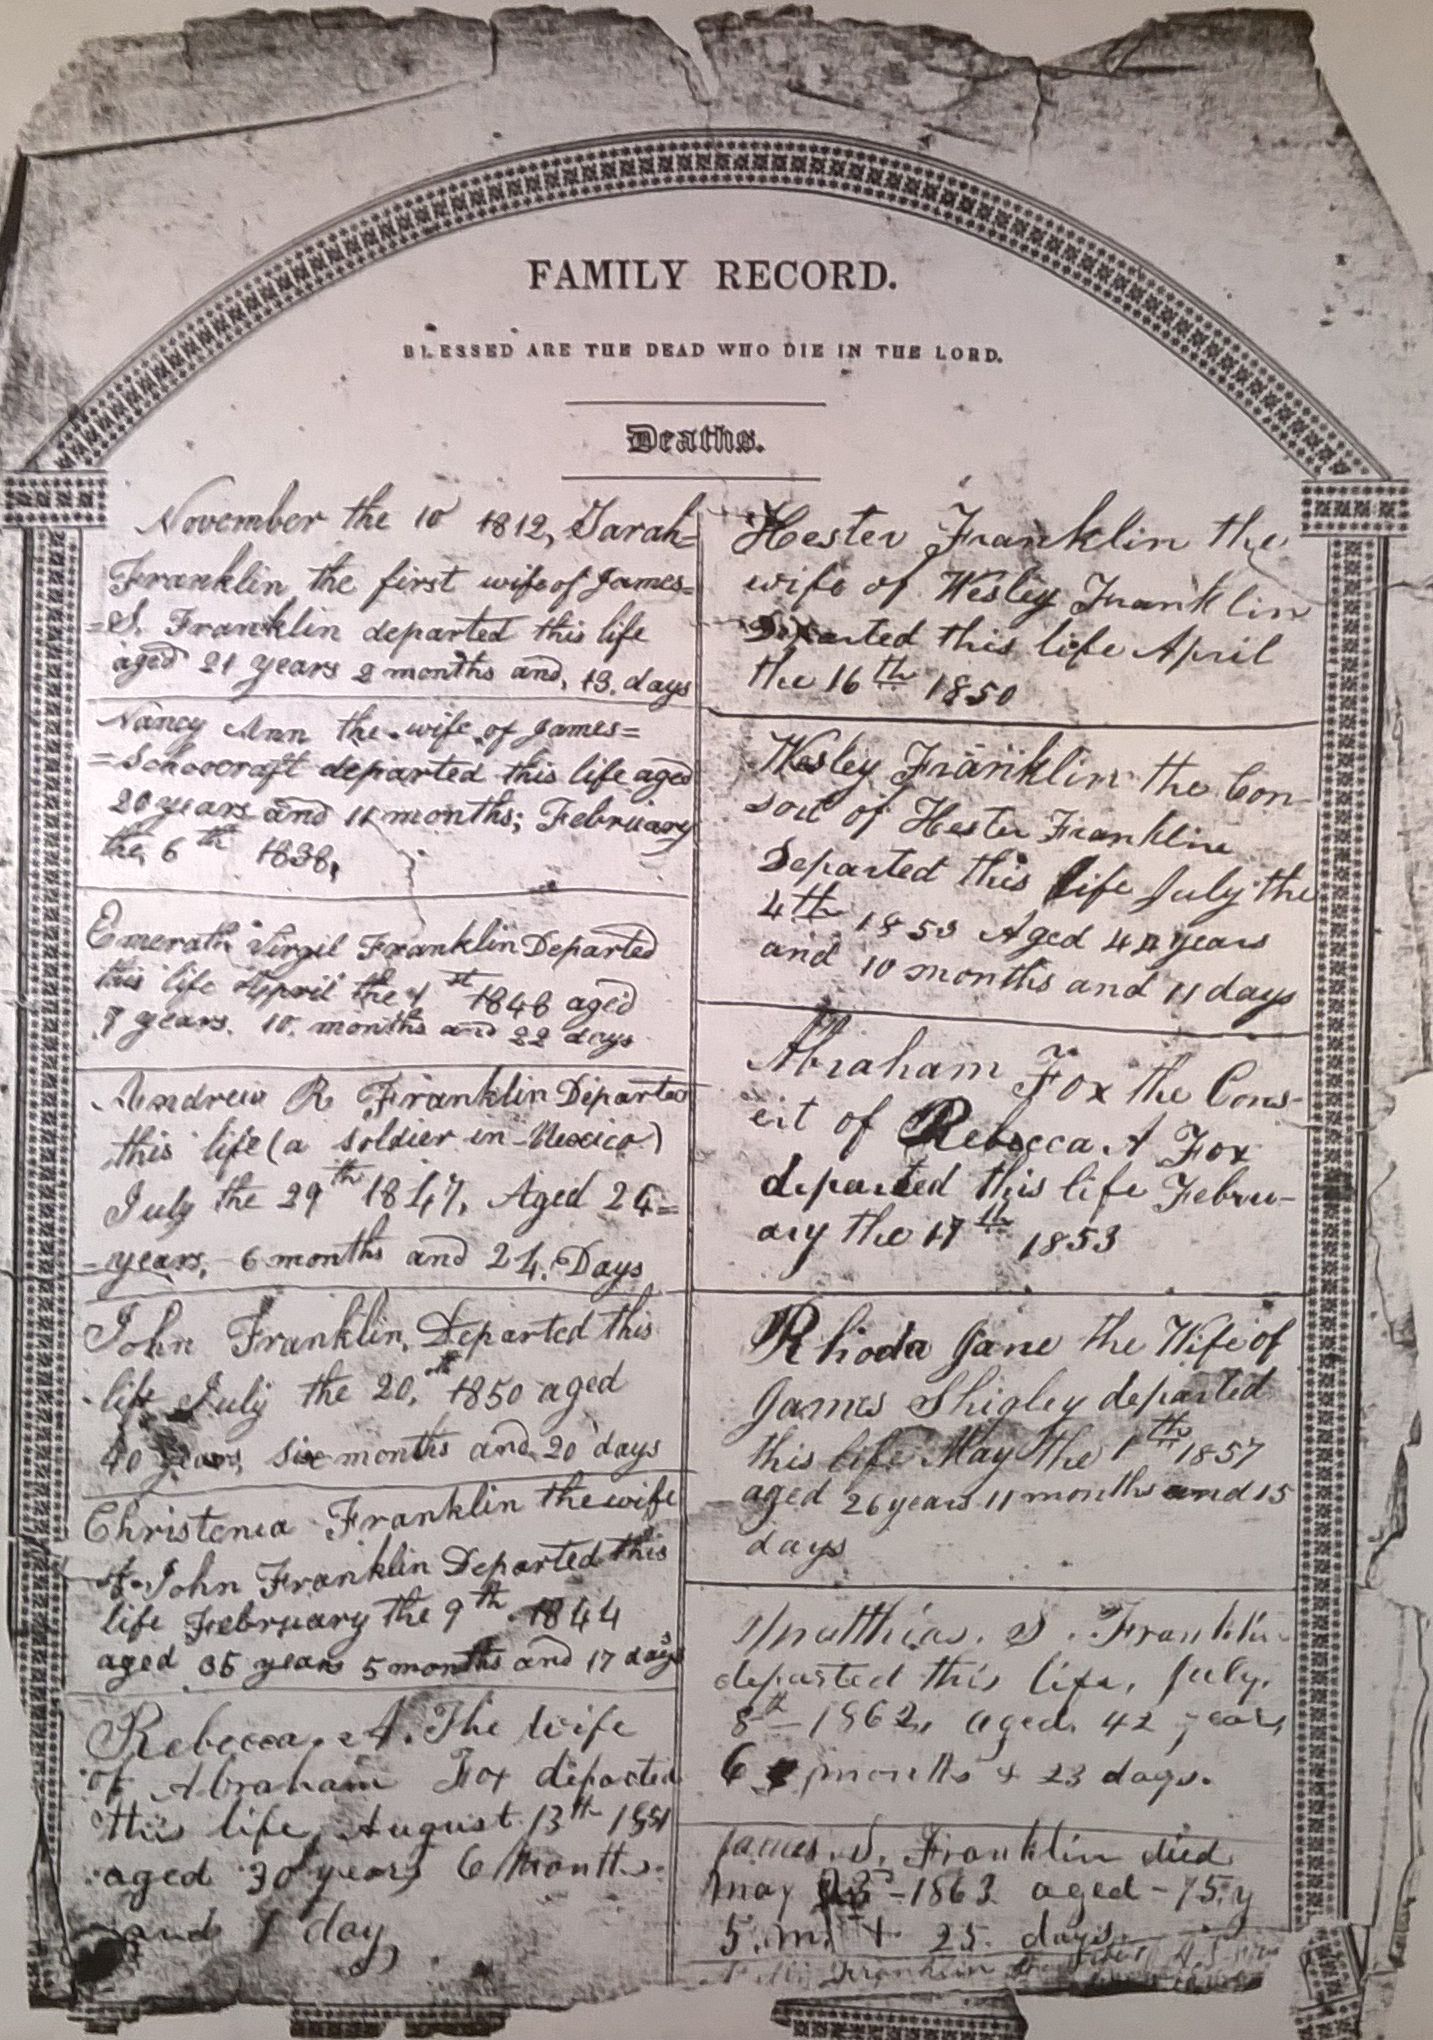 FAMILY RECORD.
BLESSED ARE THE DEAD WHO DIE IN THE LORD.
Deaths.
November the 10 1812, Sarah=
Franklin the first wife of James=
=S. Franklin departed this life
aged 21 years 2 months and, 13. days
Nancy Ann the wife of James=
=Schoocraft departed this life aged
20 years and 11 months; February
the 6th 1838,
Emerath Virgil Franklin Departed
this life April the 1st 1848 aged
7 years. 10. months and 22 days
Andrew R Franklin Departed
this life (a soldier in Mexico)
July the 29th 1847, Aged 24=
=years, 6 months and 24. Days
John Franklin, Departed this
life July the 20,th 1850 aged
40 years, six months and 20 days
Christenia Franklin the wife
of John Franklin Departed this
life February the 9th 1844
aged 35 years 5 months and 17 days
Rebecca. A. The wife
of Abraham Fox departed
this life, August 13th 1851
aged 30 years 6 Months.
and 1 day,
Hester Franklin the
wife of Wesley Franklin
Departed this life April
the 16th 1850
Wesley Franklin the Con-
sort of Hester Franklin
Departed this life July the
4th 1853 Aged 44 years
and 10 months and 11 days
Abraham Fox the Cons-
ort of Rebecca A Fox
departed this life Febru-
ary the 17th 1853
Rhoda Jane the Wife of
James Shigley departed
this life May the 1th 1857
aged 26 years 11 months and 15
days
Matthias. S. Franklin
departed this life, July.
8th 1862, aged. 42 years
6 months & 23 days.
James. S. Franklin died
May 1863 aged - 75. y
5. m. + 25. days
Franklin